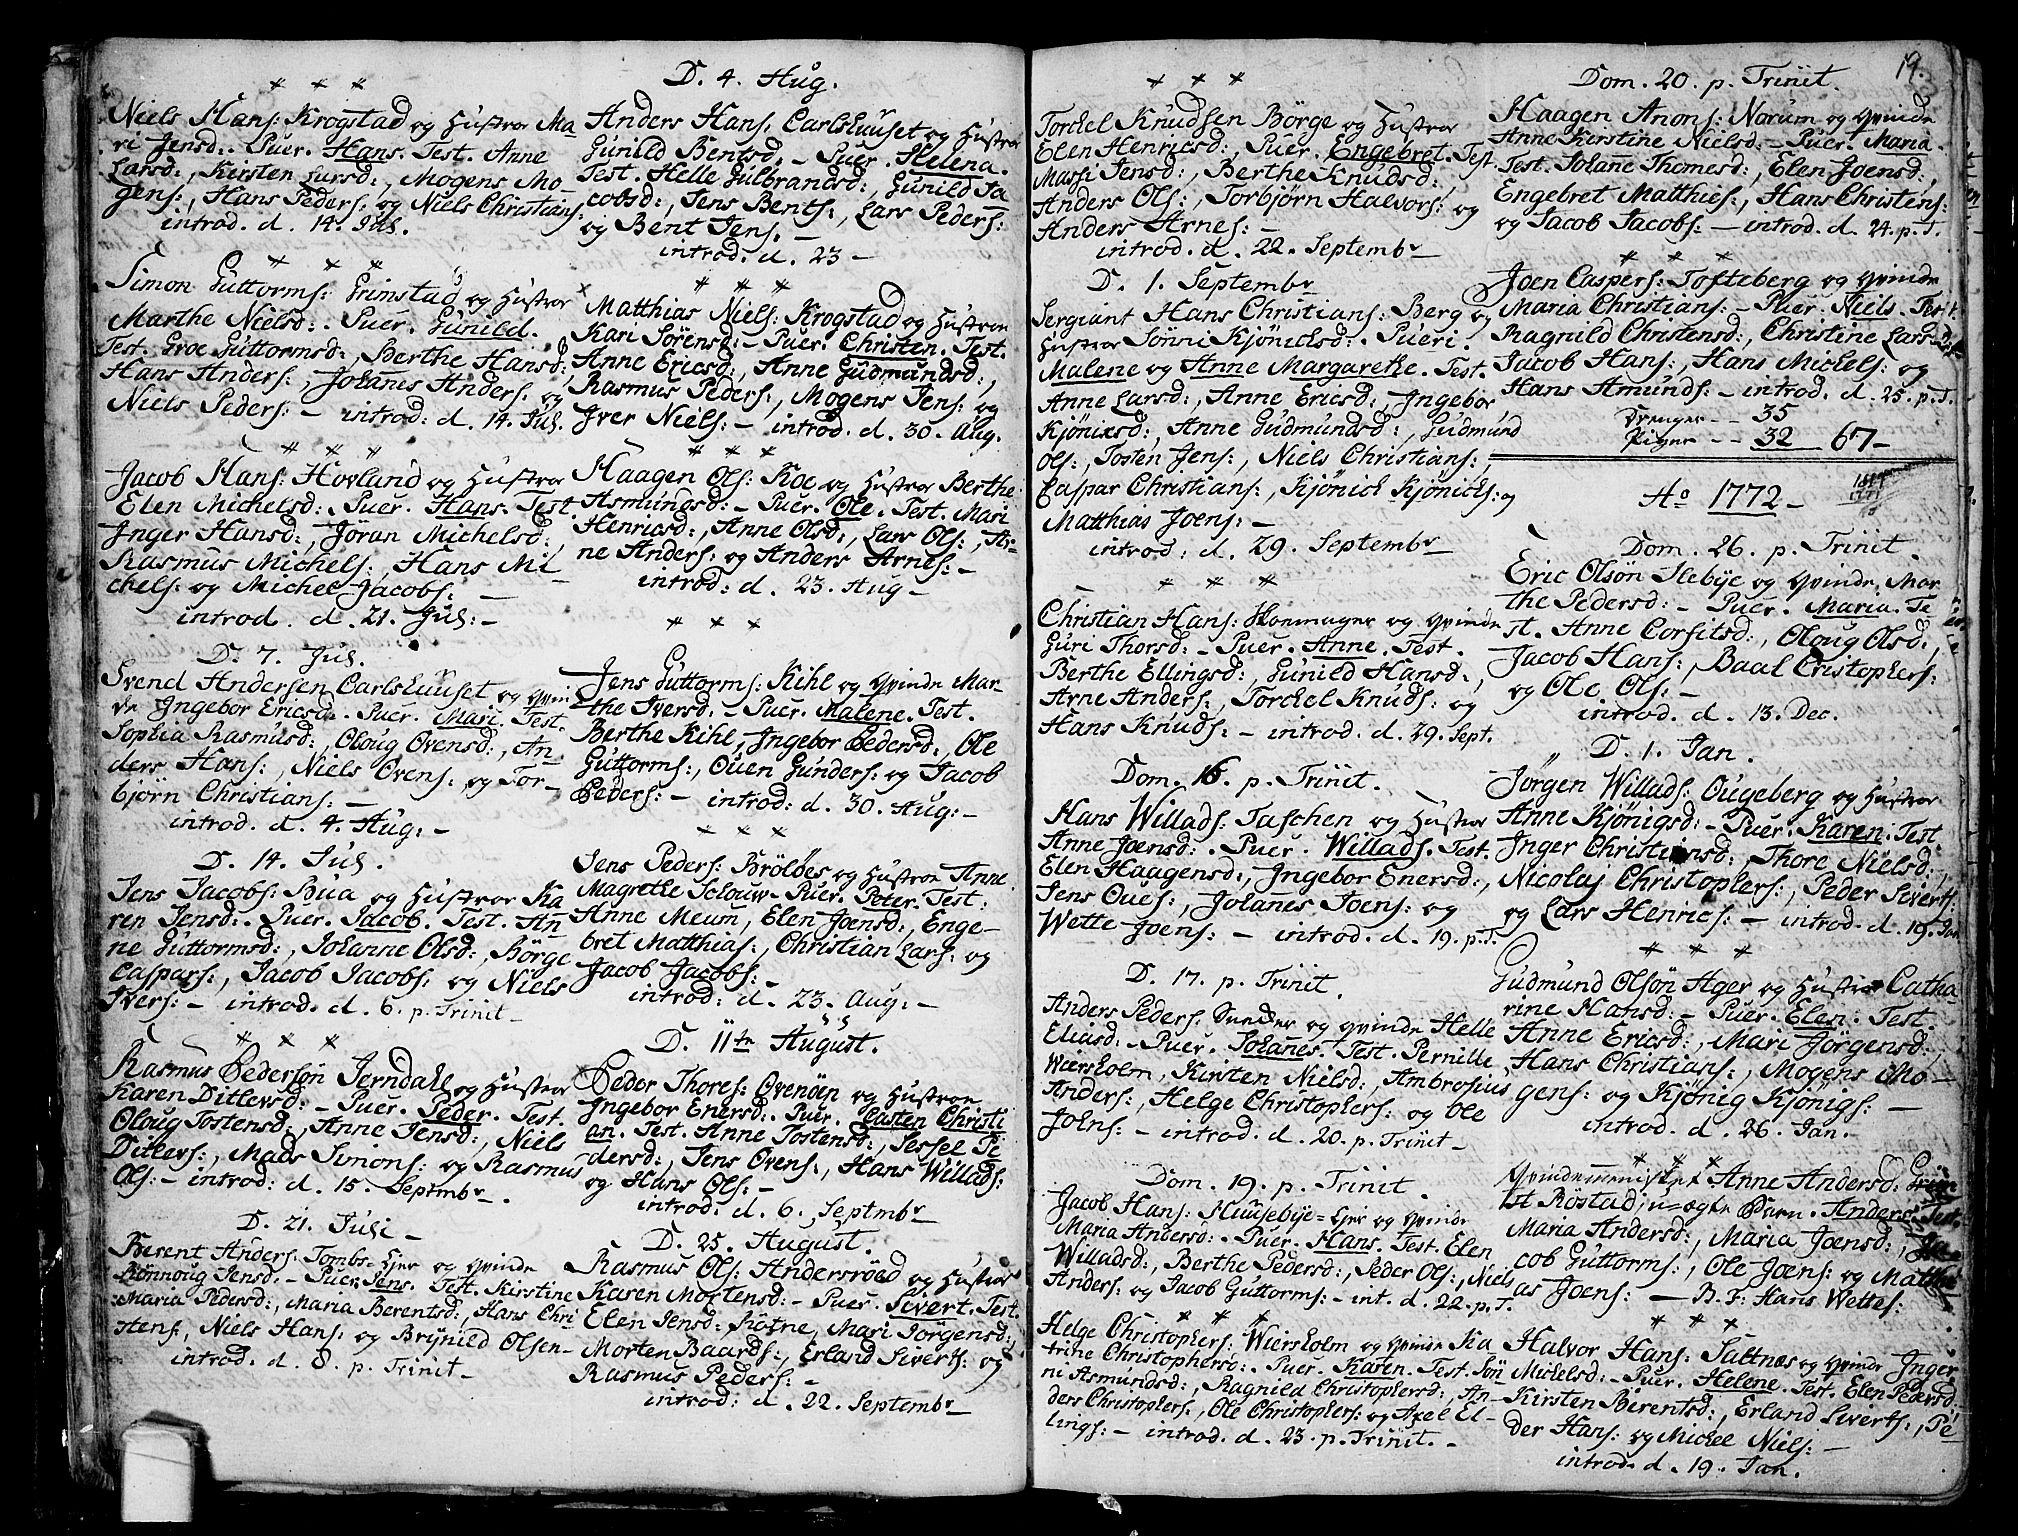 * * *
Niels Hans: Krogstad og Hustrue Ma-
ri Jensd:. Puer. Hans. Test. Anne
Larsd:, Kirsten Larsd:, Mogens Mo-
gens:, Hans Peders: og Niels Christians:
introd. d. 14. Jul.
* * *
Simon Guttorms: Grimstad og Hustroe
Marthe Nielsd:. Puer. Gunild.
Test. Groe Guttormsd:, Berthe Hansd:,
Hans Anders:, Johanes Anders: og
Niels Peders: - introd: d. 14. Jul.
* * *
Jacob Hans: Hovland og Hustroe
Elen Michelsd: Puer. Hans. Test.
Inger Hansd:, Jöran Michelsd:,
Rasmus Michels:, Hans Mi-
chels: og Michel Jacobs: -
introd. d. 21. Jul: -
D. 7. Jul.
Svend Andersen Carlshuuset og Qvin-
de Ingebor Ericsd:. Puer. Mari. Test.
Sophia Rasmusd:, Oloug Ovensd:, An-
ders Hans:, Niels Ovens:, og Tor-
björn Christians: -
introd. d. 4. Aug: -
D. 14. Jul.
Jens Jacobs: Bua og Hustroe Ka
ren Jensd:. Puer. Jacob. Test. An
ne Guttormsd:, Johanne Olsd:, Börge
Caspars:, Jacob Jacobs: og Niels
Ivers: - introd. d. 6. p. Trinit -
* * *
Rasmus Pedersøn Jerndahl og Hustroe
Karen Ditlevsd: - Puer. Peder. Test.
Oloug Tostensd:, Anne Jensd:, Niels
Ditlevs:, Mads Simons: og Rasmus
Ols: - introd: d. 15. Septmbr.
D. 21. Juli -
Berent Anders: Tombs-Eyer og Qvinde
Rönnoug Jensd:. Puer. Jens. Test. Kirstine
Maria Pedersd:, Maria Berentsd:, Hans Chri
stens:, Niels Hans: og Brynild Olsen-
introd. d. 8. p. Trinit -
D. 4. Aug.
Anders Hans: Carlshuuset og Hustroe
Gunild Bentsd: - Puer. Helena.
Test. Helle Gulbrandsd:, Gunild Ja
cobsd:, Jens Bents:, Lars Peders:
og Bent Jens. -
introd: d. 23 -
* * *
Matthias Niels: Krogstad og Hustroe
Kari Sörensd: - Puer. Christen. Test.
Anne Ericsd:, Anne Gudmundsd:,
Rasmus Peders:, Mogens Jens: og
Iver Niels: - introd. d. 30. Aug.
* * *
Haagen Ols: Roe og Hustroe Berthe
Asmundsd: - Puer. Ole. Test. Mari
Henricsd:, Anne Olsd:, Lars Ols:, Ar-
ne Anders: og Anders Arnes: -
introd: d. 23. Aug -
* * *
Jens Guttorms: Kihl og Qvinde Mar-
the Iversd: - Puer. Malene. Test.
Berthe Kihl, Ingebor Pedersd:, Ole
Guttorms:, Ouen Gunders: og Jacob
Peders: - introd: d. 30. Aug: -
* * *
Jens Peders: Brölöes og Hustroe Anne
Magrethe Schouw. Puer. Peter. Test:
Anne Meum, Elen Joensd:, Enge-
bret Matthias:, Christian Lars: og
Jacob Jacobs: -
introd: d. 23. Aug: -
D. 11te August.
Peder Thores: Ovenöen og Hustroe
Ingebor Enersd:. Puer. Casten Christi
an. Test. Anne Tostensd:, Sessel Pe
dersd:, Jens Ovens:, Hans Willads:
og Hans Ols: -
introd: d. 6. Septmbr
D. 25. August.
Rasmus Ols: Andersröed og Hustroe
Karen Mortensd: - Puer. Sivert. Test.
Elen Jensd:, Mari Jörgensd:,
Morten Baards:, Erland Siverts: og
Rasmus Peders: -
introd: d. 22. Septembr
* * *
Torchel Knudsen Börge og Hustroe
Elen Henricsd:, Puer. Engebret. Test.
Massi Jensd:, Berthe Knudsd:,
Anders Ols:, Torbjørn Halvors: og
Anders Arnes: -
introd: d. 22. Septembr
D. 1. Septembr
Sergiant Hans Christians: Berg og
Hustroe Sönni Kjönicksd:. Pueri.
Malene og Anne Margarethe. Test.
Anne Larsd:, Anne Ericsd:, Ingebor
Kjönixsd:, Anne Gudmundsd:, Gudmund
Ols:, Tosten Jens:, Niels Christians:,
Caspar Christians:, Kjönich Kjönichs: og
Matthias Joens: -
introd: d. 29. Septembr
* * *
Christian Hans: og Qvinde
Guri Thorsd: - Puer. Anne. Test.
Berthe Ellingsd:, Gunild Hansd:,
Arne Anders:, Torchel Knuds: og
Hans Knuds: - introd. d. 29. Sept.
Dom. 16. p. Trinit.
Hans Willads: Taschen og Hustroe
Anne Joensd:. Puer. Willads. Test.
Elen Haagensd:, Ingebor Enersd:,
Jens Oues:, Johanes Joens: og
Wette Joens: - introd. d. 19. p. T.
D. 17. p. Trinit.
Anders Peders: Sundlöer og Qvinde Helle
Eliasd: - Puer. Johanes. Test. Pernille
Wiersholm, Kirsten Nielsd:, Ambrosius
Anders:, Helge Christophers: og Ole
Johns: - introd. d. 20. p. Trinit -
Dom. 19. p. Trinit.
Jacob Hans: Huusebye-Eyer og Qvinde
Maria Andersd:. Puer. Hans. Test. Elen
Willadsd:, Berthe Pedersd:, Peder Ols:, Niels
Anders: og Jacob Guttorms: - int. d. 22. p. T.
* * *
Helge Christophers: Wiersholm og Qvinde Ka
trine Christophersd:. Puer. Karen. Test. Sön
ni Asmundsd:, Ragnild Christophersd:, An-
ders Christophers:, Ole Christophers: og Axel El-
lings: - introd. d. 23. p. Trinit. -
19.
Dom. 20. p. Trinit.
Haagen Anons: Norum og Qvinde
Anne Kirstine Nielsd: - Puer. Maria.
Test. Johane Thomesd:, Elen Joensd:,
Engebret Matthies:, Hans Christens:
og Jacob Jacobs: - introd. d. 24. p. T.
* * *
Joen Caspers: Tofteberg og Qvinde
Maria Christians: - Puer. Niels. Test.
Ragnild Christensd:, Christine Larsd:
Jacob Hans:, Hans Michels: og
Hans Amunds: - introd. d. 25. p. T.
Drenger - - 35
Piger - - 32 67 -
Ao 1772 -
Dom. 26. p. Trinit.
Eric Olsön Ilebye og Qvinde Mar
the Pedersd: - Puer. Maria. Te
st. Anne Corfitsd:, Oloug Olsd:,
Jacob Hans:, Baal Cristophers:
og Ole Ols: -
introd. d. 13. Dec.
D. 1. Jan.
Jørgen Willads: Ougeberg og Hustroe
Anne Kjönigsd: - Puer. Karen. Test.
Inger Christiansd:, Thore Nielsd:,
Nicolaj Christophers:, Peder Siverts:
og Lars Henrics: - introd. d. 19. Jan
* * *
Gudmund Olsön Ager og Hustroe Catha
rine Hansd: - Puer. Elen. Test.
Anne Ericsd:, Mari Jörgensd:,
Hans Christians:, Mogens Mo-
gens: og Kjönig Kjönigs: -
introd. d. 26. Jan. -
* * *
Qvindemennisket Anne Andersd:
Röstad, u-ægte Barn. Anders. Test.
Maria Andersd:, Maria Joensd:, Ja
cob Guttorms:, Ole Joens: og Matthi
as Joens: - B. F: Hans Wettes:
* * *
Halvor Hans: Saltnæs og Qvinde Inger
Michelsd: - Puer. Helene. Test. Elen Pedersd:
Kirsten Berentsd:, Erland Siverts:, Pe
der Hans: og Michel Niels: -
introd. d. 19. Jan.